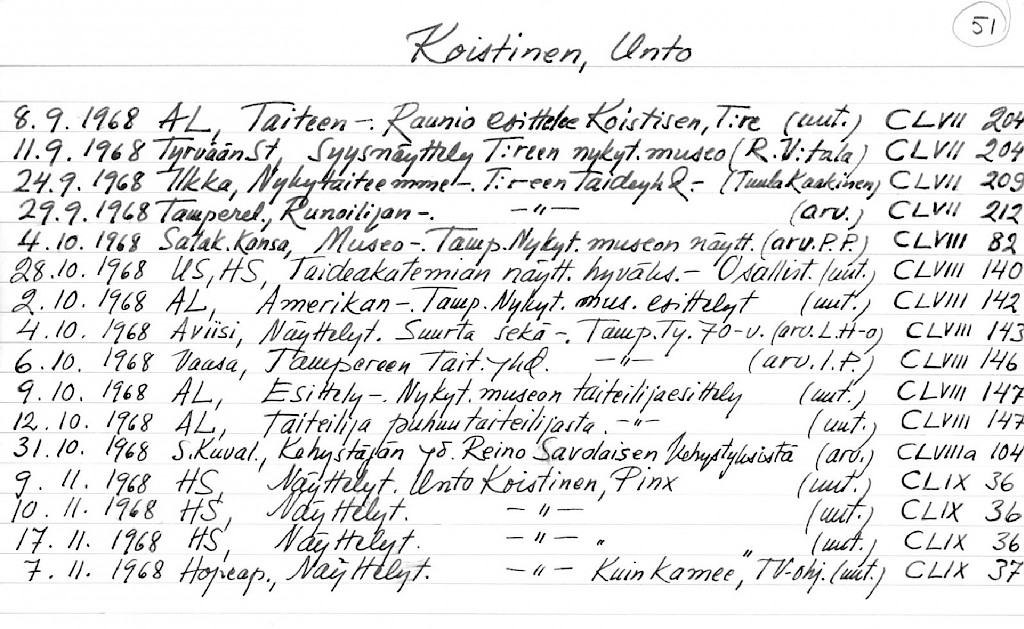 51
Koistinen, Unto
8.9.1968 AL, Taiteen-. Raunio esittelee Koistisen, T:re (uut.) CLVII 204
11.9.1968 TyrväänSt, Syysnäyttely T:reen nykyt.museo (R.V:tala) CLVII 204
24.9.1968 Ilkka, Nykytaiteemme-. T:reen Taideyhd.- (Tuula Kaakinen) CLVII 209
29.9.1968 Tamperel., Runoilijan-. -"- (arv.) CLVII 212
4.10.1968 Satak.Kansa, Museo-. Tamp.Nykyt.museon näytt. (arv.P.P.) CLVIII 82
28.10.1968 US, HS, Taideakatemian näytt. hyväks.- Osallist. (uut.) CLVIII 140
2.10.1968 AL, Amerikan-. Tamp.Nykyt.mus. esittelyt (uut.) CLVIII 142
4.10.1968 Aviisi, Näyttelyt. Suurta sekä-. Tamp.Ty.70-v. (arv.L.H-o) CLVIII 143
6.10.1968 Vaasa, Tampereen Tait.yhd. -"- (arv.I.P.) CLVIII 146
9.10.1968 AL, Esittely-. Nykyt.museon taiteilijaesittely (uut.) CLVIII 147
12.10.1968 AL, Taiteilija puhuu taiteilijasta. -"- (uut.) CLVIII 147
31.10.1968 S.Kuval., Kehystäjän yö. Reino Savolaisen kehystyksistä (arv.) CLVIIIa 104
9.11.1968 HS, Näyttelyt. Unto Koistinen, Pinx (uut.) CLIX 36
10.11.1968 HS, Näyttelyt. -"- (uut.) CLIX 36
17.11.1968 HS, Näyttelyt. -"- " " (uut.) CLIX 36
7.11.1968 Hopeap., Näyttelyt. -"- Kuin kamee, TV-ohj. (uut.) CLIX 37